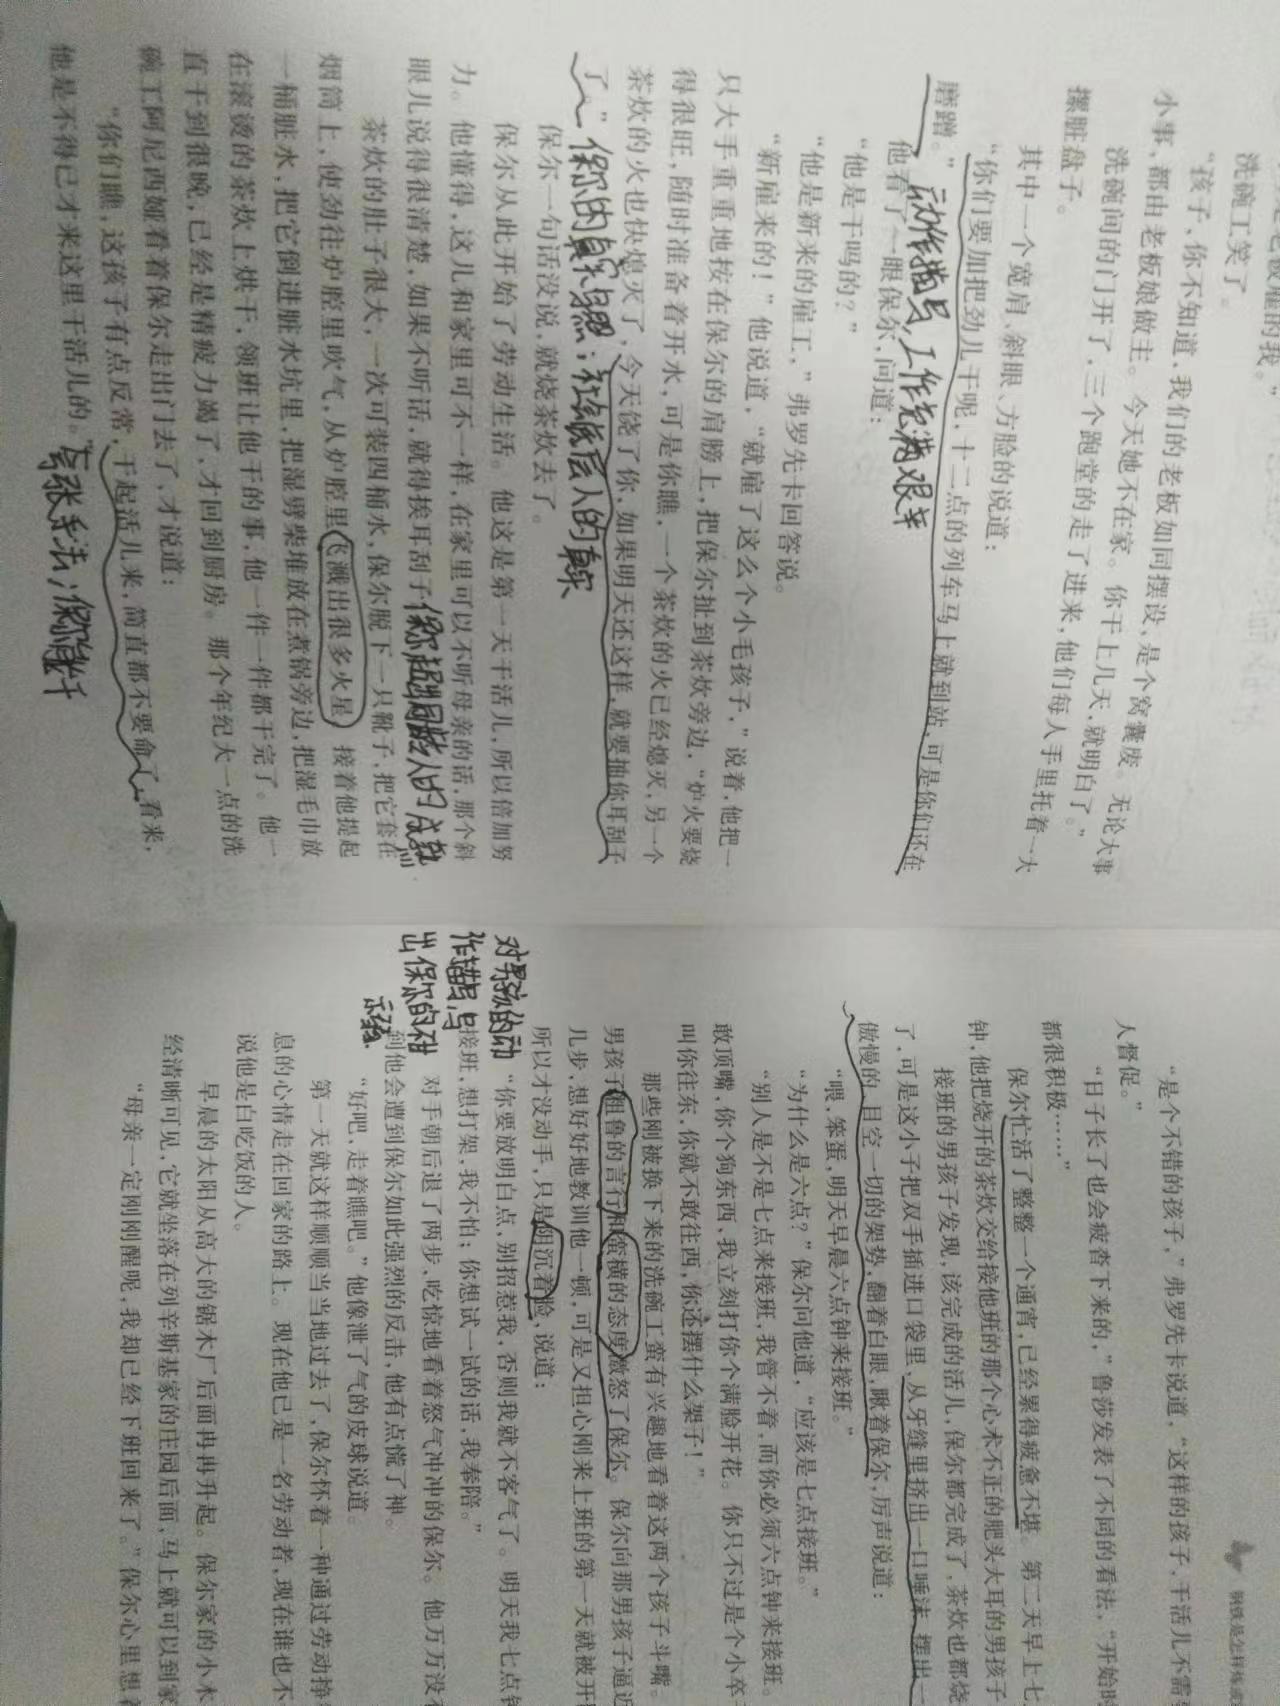 洗碗工笑了。
“孩子,你不知道,我们的老板如同摆设,是个窝囊废。无论大事
小事,都由老板娘做主。今天她不在家。你干上几天,就明白了。”
洗碗间的门开了,三个跑堂的走了进来,他们每人手里托着一大
摞脏盘子。
其中一个宽肩、斜眼、方脸的说道:
“你们要加把劲儿干呢,十二点的列车马上就到站,可是你们还在
磨蹭。”
动作描写,工作充满艰辛
他看了一眼保尔,问道:
“他是干吗的?”
“他是新来的雇工,”弗罗先卡回答说。
“新雇来的!”他说道,“就雇了这么个小毛孩子,”说着,他把一
只大手重重地按在保尔的肩膀上,把保尔扯到茶炊旁边,“炉火要烧
得很旺,随时准备着开水,可是你瞧,一个茶炊的火已经熄灭,另一个
茶炊的火也快熄灭了,今天饶了你,如果明天还这样,就要抽你耳刮子
了。”
保尔一句话没说,就烧茶炊去了。
保尔从此开始了劳动生活。他这是第一天干活儿,所以倍加努
力。他懂得,这儿和家里可不一样,在家里可以不听母亲的话,那个斜
眼儿说得很清楚,如果不听话,就得挨耳刮子。
茶炊的肚子很大,一次可装四桶水,保尔脱下一只靴子,把它套在
烟筒上,使劲往炉腔里吹气,从炉腔里飞溅出很多火星,接着他提起
一桶脏水,把它倒进脏水坑里,把湿劈柴堆放在煮锅旁边,把湿毛巾放
在滚烫的茶炊上烘干,领班让他干的事,他一件一件都干完了。他一
直干到很晚,已经是精疲力竭了,才回到厨房。那个年纪大一点的洗
碗工阿尼西娅看着保尔走出门去了,才说道:
“你们瞧,这孩子有点反常,干起活儿来,简直都不要命了。看来,
他是不得已才来这里干活儿的。”
钢铁是怎样炼成
“是个不错的孩子,”弗罗先卡说道,“这样的孩子,干活儿不需
人督促。”
“日子长了也会疲沓下来的,”鲁莎发表了不同的看法,“开始时
都很积极……”
保尔忙活了整整一个通宵,已经累得疲惫不堪。第二天早上七
钟,他把烧开的茶炊交给接他班的那个心术不正的肥头大耳的男孩子
接班的男孩子发现,该完成的活儿,保尔都完成了,茶炊也都烧
了,可是这小子把双手插进口袋里,从牙缝里挤出一口唾沫,摆出一
傲慢的、目空一切的架势,翻着白眼,瞅着保尔,厉声说道:
“喂,笨蛋,明天早晨六点钟来接班。”
“为什么是六点?”保尔问他道,“应该是七点接班。”
“别人是不是七点来接班,我管不着,而你必须六点钟来接班。
敢顶嘴,你个狗东西,我立刻打你个满脸开花。你只不过是个小卒
叫你往东,你就不敢往西,你还摆什么架子!”
那些刚被换下来的洗碗工蛮有兴趣地看着这两个孩子斗嘴。
男孩子粗鲁的言行和蛮横的态度激怒了保尔。保尔向那男孩子逼近
几步,想好好地教训他一顿,可是又担心刚来上班的第一天就被开
所以才没动手,只是阴沉着脸,说道:
对男孩的动
作描写,写
出保尔的
“你要放明白点,别招惹我,否则我就不客气了。明天我七点钟
接班,想打架,我不怕;你想试一试的话,我奉陪。”
对手朝后退了两步,吃惊地看着怒气冲冲的保尔。他万万没
到他会遭到保尔如此强烈的反击,他有点慌了神。
“好吧,走着瞧吧。”他像泄了气的皮球说道。
第一天就这样顺顺当当地过去了,保尔怀着一种通过劳动挣
息的心情走在回家的路上。现在他已是一名劳动者,现在谁也不
说他是白吃饭的人。
早晨的太阳从高大的锯木厂后面冉冉升起。保尔家的小木
经清晰可见,它就坐落在列辛斯基家的庄园后面,马上就可以到家
“母亲一定刚刚醒呢,我却已经下班回来了。”保尔心里想着